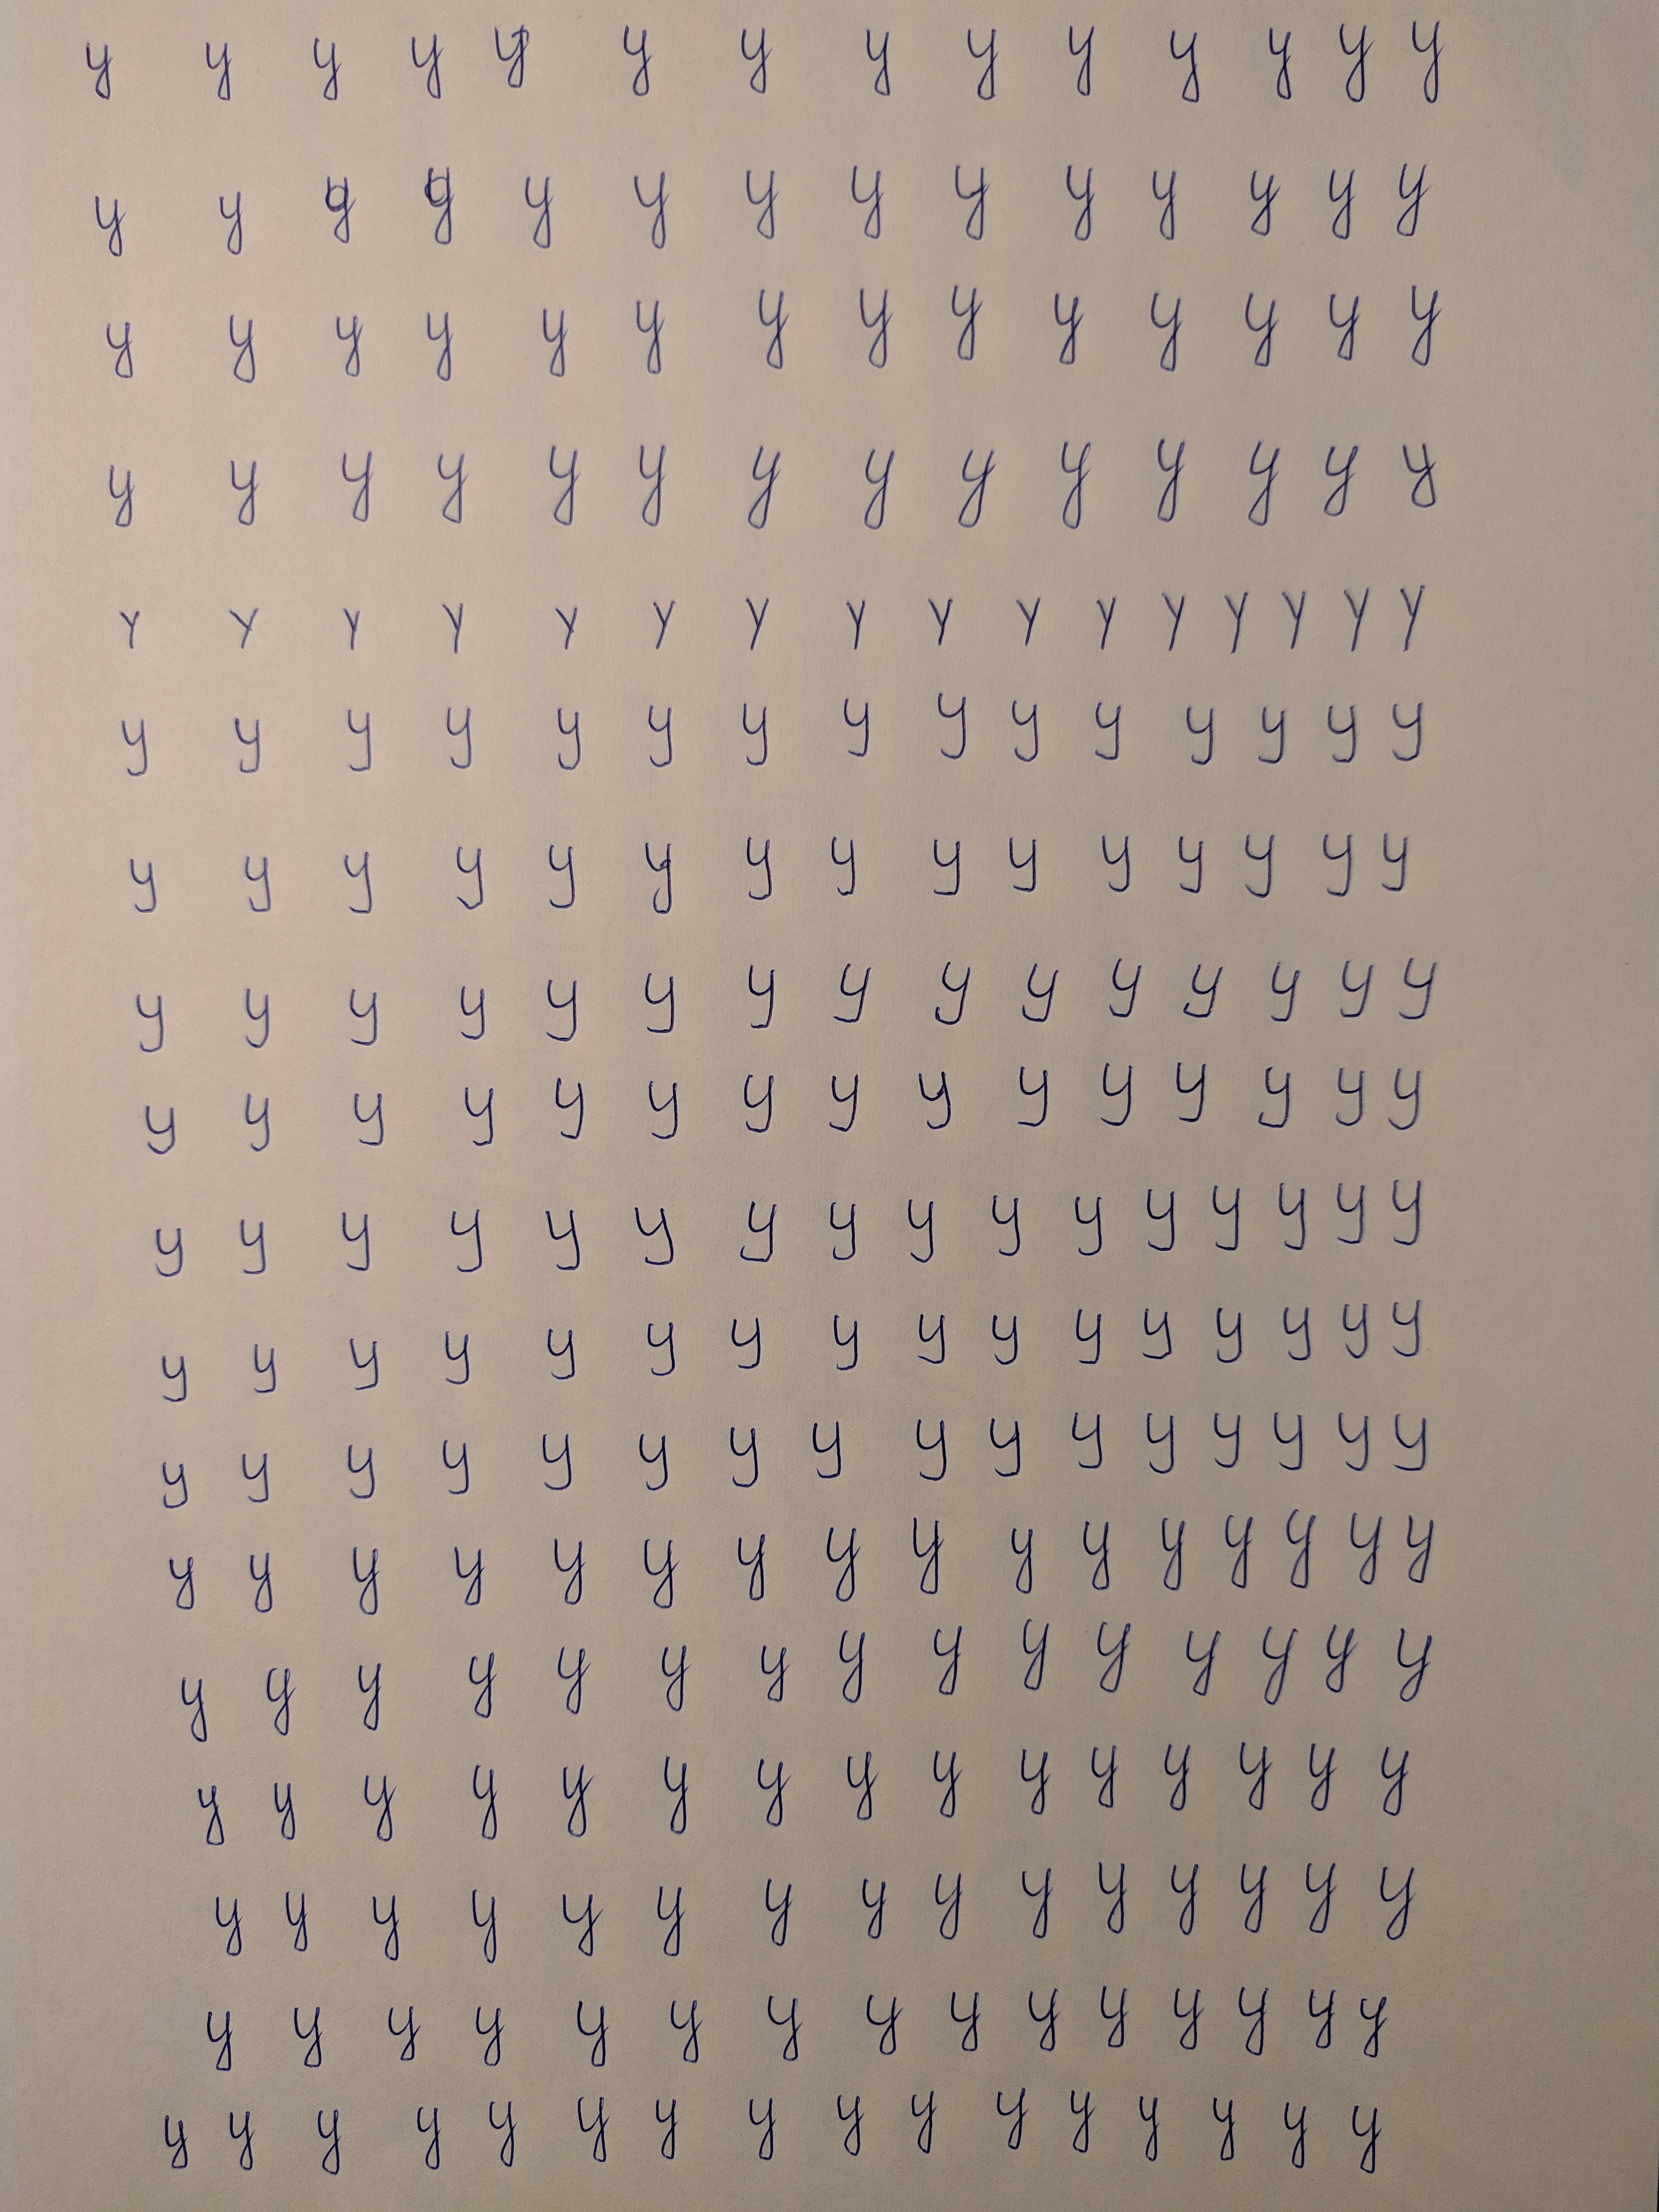 y y y y y y y y y y y y y y
y y y y y y y y y y y y y y
y y y y y y y y y y y y y y
y y y y y y y y y y y y y y
Y Y Y Y Y Y Y Y Y Y Y Y Y Y Y Y
y y y y y y y y y y y y y y y
y y y y y y y y y y y y y y y
y y y y y y y y y y y y y y y
y y y y y y y y y y y y y y y
y y y y y y y y y y y y y y y y
y y y y y y y y y y y y y y y y
y y y y y y y y y y y y y y y y
y y y y y y y y y y y y y y y y
y y y y y y y y y y y y y y y
y y y y y y y y y y y y y y y
y y y y y y y y y y y y y y y
y y y y y y y y y y y y y y y
y y y y y y y y y y y y y y y y